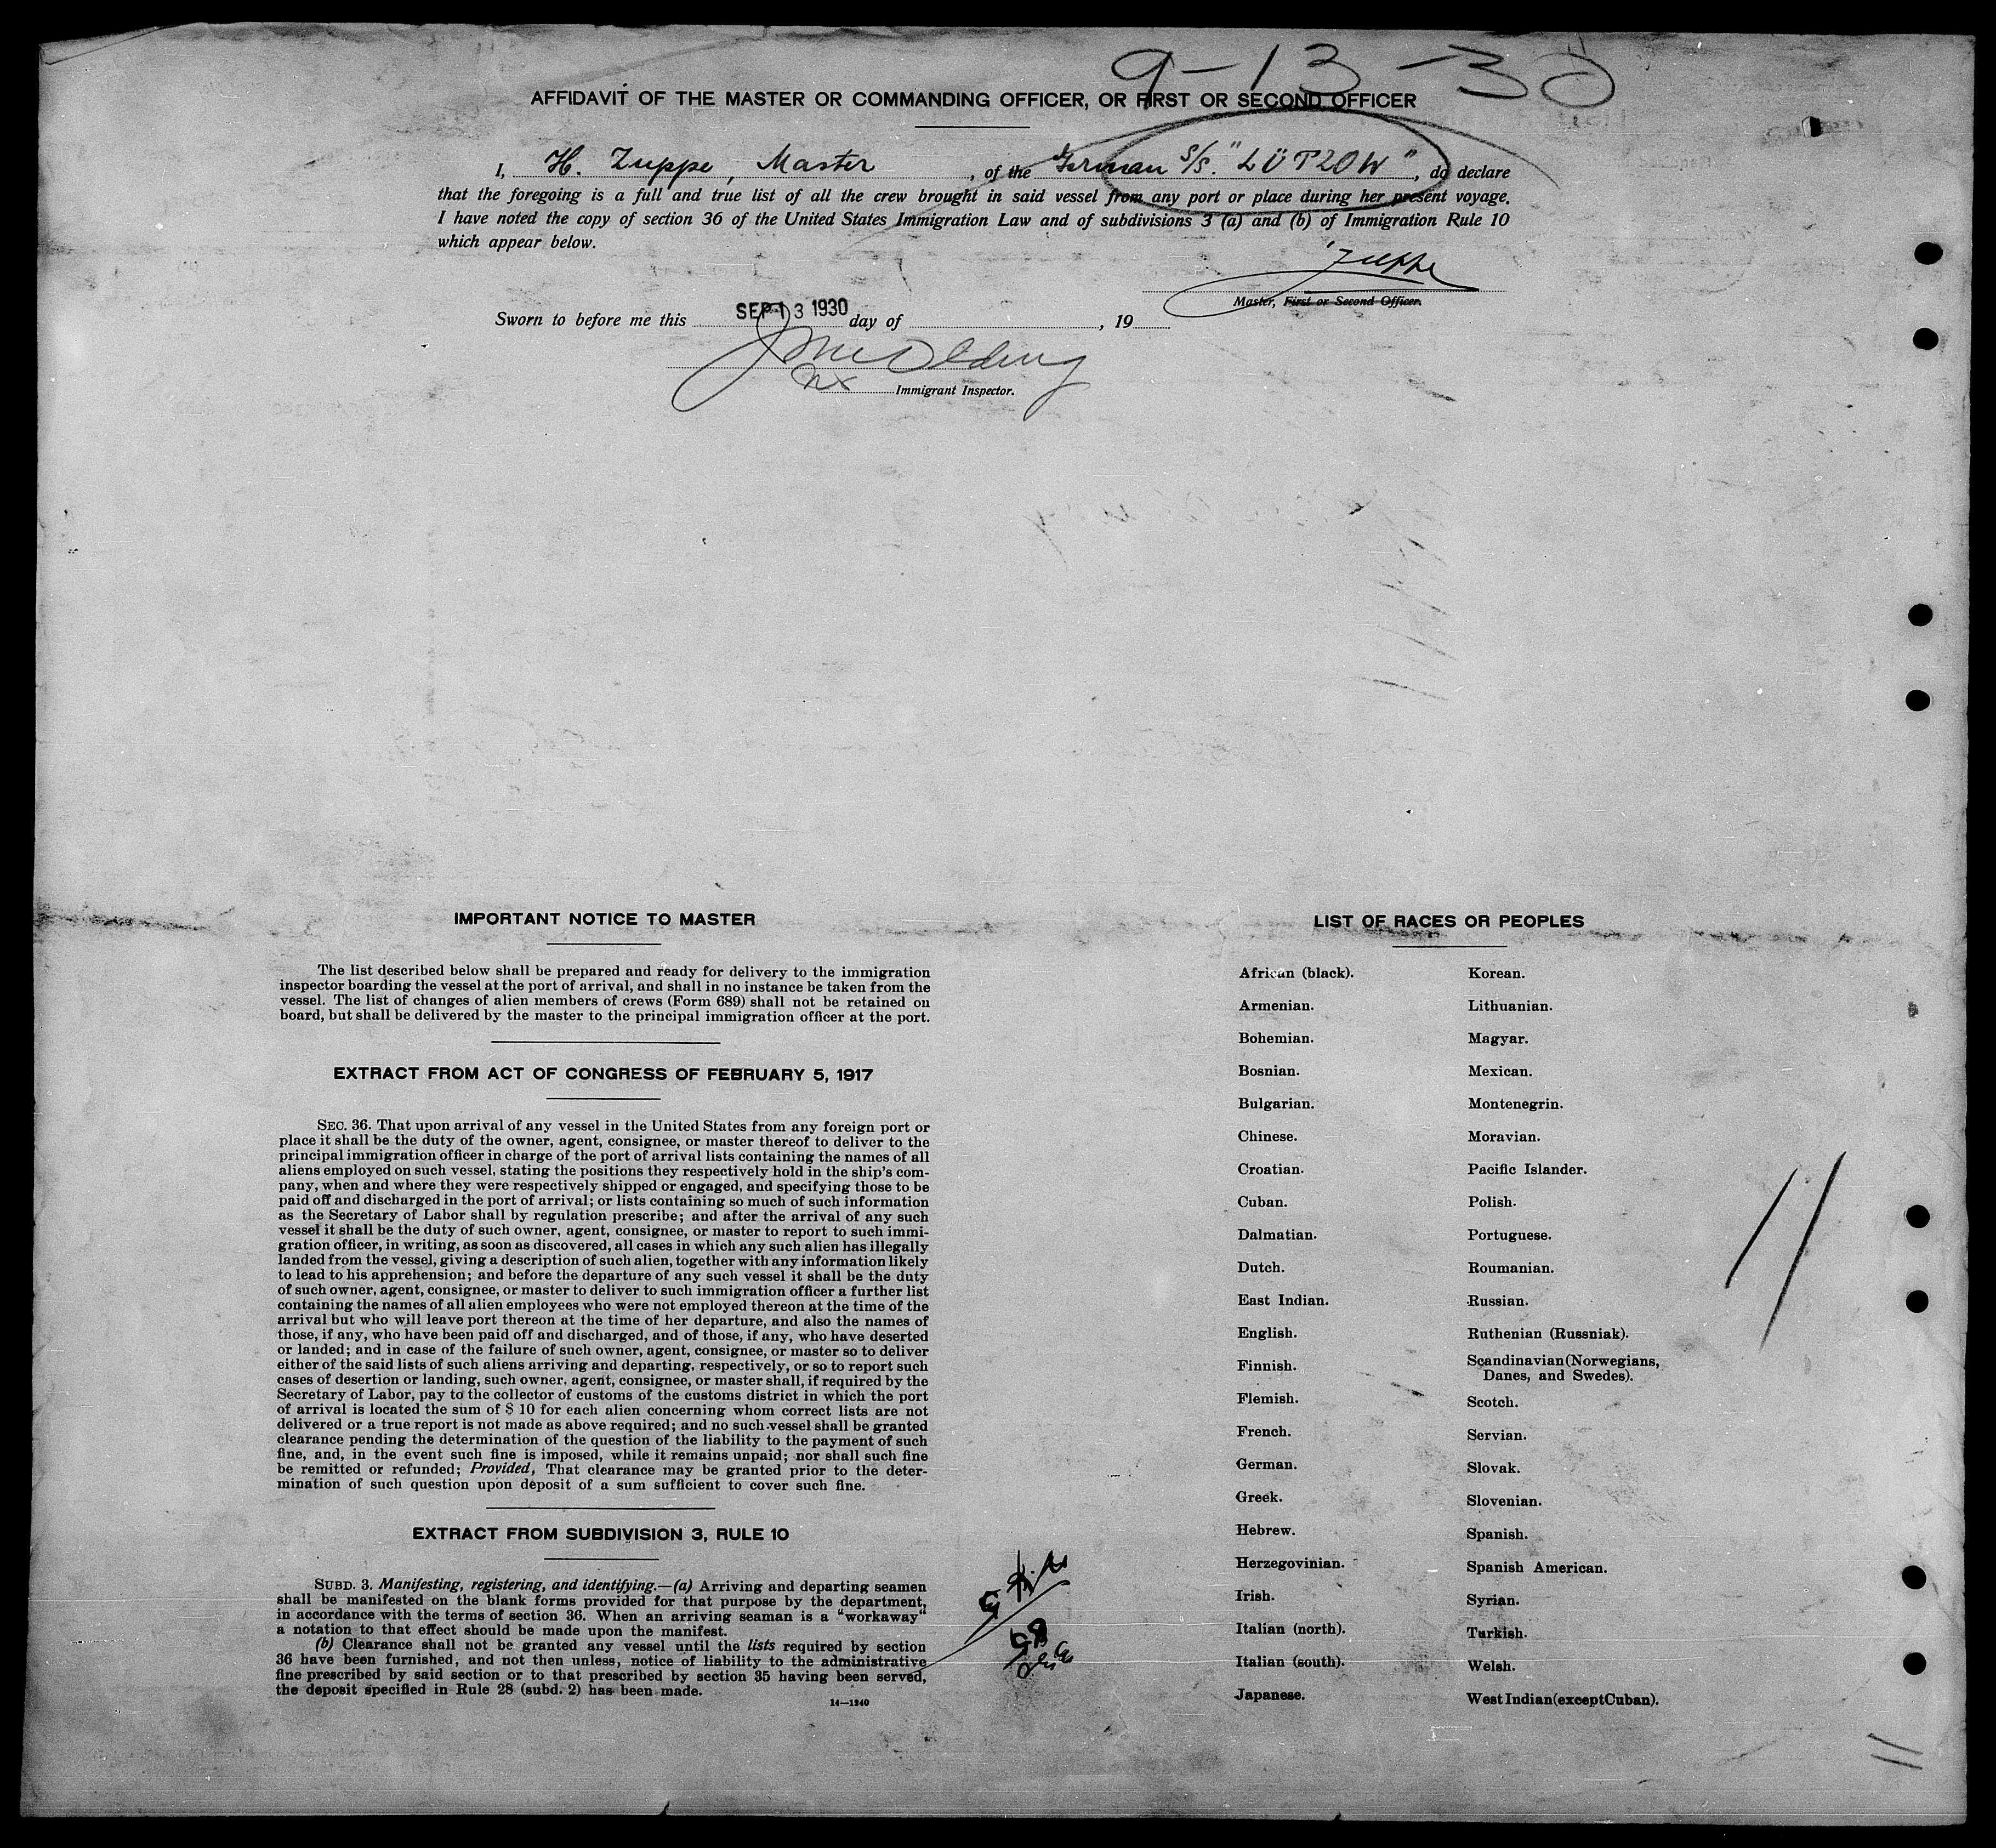 9-13-30
AFFIDAVIT OF THE MASTER OR COMMANDING OFFICER, OR FIRST OR SECOND OFFICER
I, H. Zuppe, Master, of the German S/S. "LÜTZOW", do declare
that the foregoing is a full and true list of all the crew brought in said vessel from any port or place during her present voyage.
I have noted the copy of section 36 of the United States Immigration Law and of subdivisions 3 (a) and (b) of Immigration Rule 10
which appear below.
Zuppe
Master, First or Second Officer.
Sworn to before me this SEP 13 1930 day of , 19
Immigrant Inspector.
IMPORTANT NOTICE TO MASTER
The list described below shall be prepared and ready for delivery to the immigration
inspector boarding the vessel at the port of arrival, and shall in no instance be taken from the
vessel. The list of changes of alien members of crews (Form 689) shall not be retained on
board, but shall be delivered by the master to the principal immigration officer at the port.
EXTRACT FROM ACT OF CONGRESS OF FEBRUARY 5, 1917
SEC. 36. That upon arrival of any vessel in the United States from any foreign port or
place it shall be the duty of the owner, agent, consignee, or master thereof to deliver to the
principal immigration officer in charge of the port of arrival lists containing the names of all
aliens employed on such vessel, stating the positions they respectively hold in the ship's com-
pany, when and where they were respectively shipped or engaged, and specifying those to be
paid off and discharged in the port of arrival; or lists containing so much of such information
as the Secretary of Labor shall by regulation prescribe; and after the arrival of any such
vessel it shall be the duty of such owner, agent, consignee, or master to report to such immi-
gration officer, in writing, as soon as discovered, all cases in which any such alien has illegally
landed from the vessel, giving a description of such alien, together with any information likely
to lead to his apprehension; and before the departure of any such vessel it shall be the duty
of such owner, agent, consignee, or master to deliver to such immigration officer a further list
containing the names of all alien employees who were not employed thereon at the time of the
arrival but who will leave port thereon at the time of her departure, and also the names of
those, if any, who have been paid off and discharged, and of those, if any, who have deserted
or landed; and in case of the failure of such owner, agent, consignee, or master so to deliver
either of the said lists of such aliens arriving and departing, respectively, or so to report such
cases of desertion or landing, such owner, agent, consignee, or master shall, if required by the
Secretary of Labor, pay to the collector of customs of the customs district in which the port
of arrival is located the sum of $ 10 for each alien concerning whom correct lists are not
delivered or a true report is not made as above required; and no such vessel shall be granted
clearance pending the determination of the question of the liability to the payment of such
fine, and, in the event such fine is imposed, while it remains unpaid; nor shall such fine
be remitted or refunded; Provided, That clearance may be granted prior to the deter-
mination of such question upon deposit of a sum sufficient to cover such fine.
EXTRACT FROM SUBDIVISION 3, RULE 10
SUBD. 3. Manifesting, registering, and identifying.—(a) Arriving and departing seamen
shall be manifested on the blank forms provided for that purpose by the department,
in accordance with the terms of section 36. When an arriving seaman is a "workaway"
a notation to that effect should be made upon the manifest.
(b) Clearance shall not be granted any vessel until the lists required by section
36 have been furnished, and not then unless, notice of liability to the administrative
fine prescribed by said section or to that prescribed by section 35 having been served,
the deposit specified in Rule 28 (subd. 2) has been made.
14—1240
LIST OF RACES OR PEOPLES
African (black).
Armenian.
Bohemian.
Bosnian.
Bulgarian.
Chinese.
Croatian.
Cuban.
Dalmatian.
Dutch.
East Indian.
English.
Finnish.
Flemish.
French.
German.
Greek.
Hebrew.
Herzegovinian.
Irish.
Italian (north).
Italian (south).
Japanese.
Korean.
Lithuanian.
Magyar.
Mexican.
Montenegrin.
Moravian.
Pacific Islander.
Polish.
Portuguese.
Roumanian.
Russian.
Ruthenian (Russniak).
Scandinavian (Norwegians,
Danes, and Swedes).
Scotch.
Servian.
Slovak.
Slovenian.
Spanish.
Spanish American.
Syrian.
Turkish.
Welsh.
West Indian (except Cuban).
11